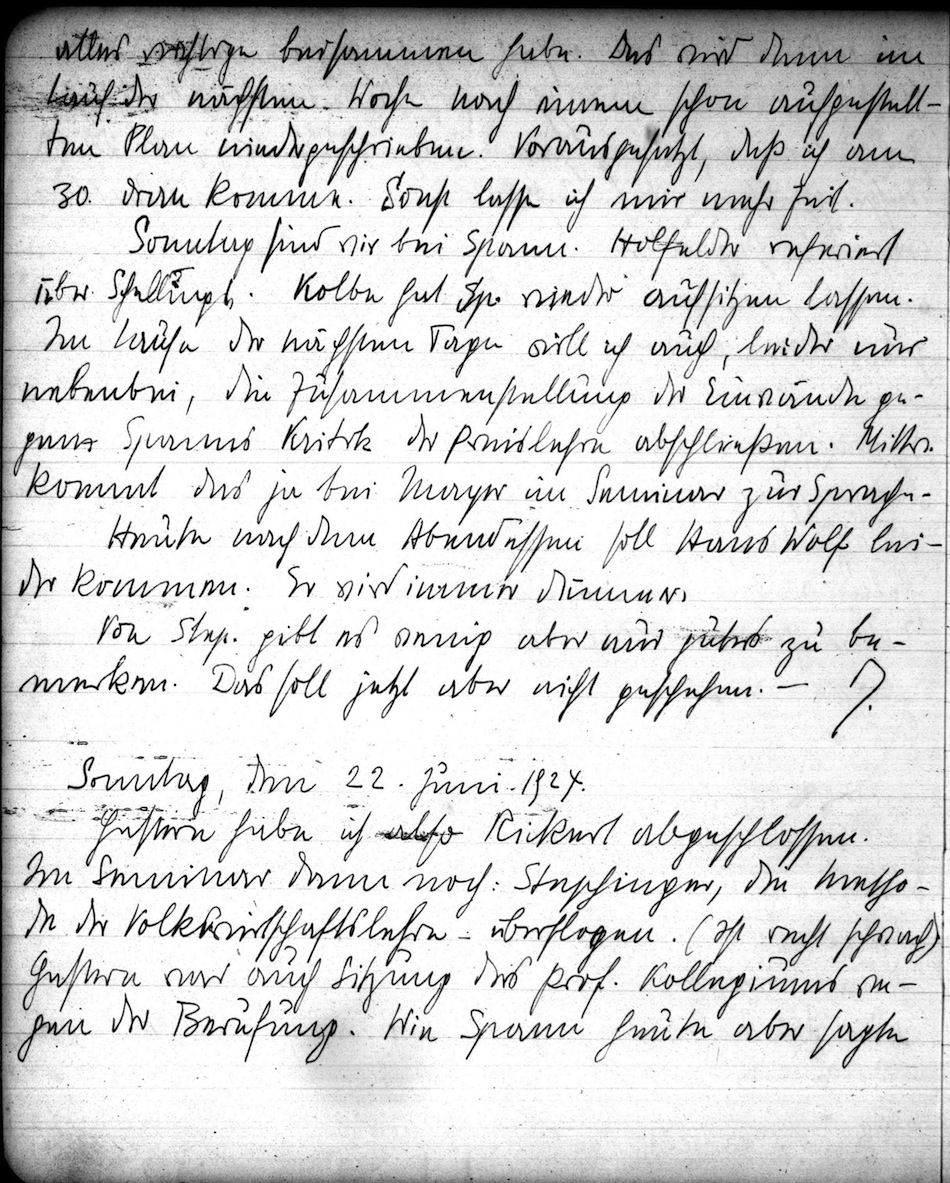 alles wichtige beisammen habe. Das wird dann im
Lauf der nächsten Woche nach einem schon aufgestell-
ten Plan niedergeschrieben. Vorausgesetzt, daß ich am
30. dran komme. Sonst lasse ich mir mehr Zeit.
Sonntag sind wir bei Spann. Holfelder referiert
über Schelling. Kolbe hat Sp. wieder aufsitzen lassen.
Im Laufe der nächsten Tage will ich auch, leider nur
nebenbei, die Zusammenstellung der Einwände ge-
gen Spanns Kritik der Preislehre abschließen. Mittw.
kommt das ja bei Mayer im Seminar zur Sprache.
Heute nach dem Abendessen soll Hans Wolf lei-
der kommen. Er wird immer dümmer.
Von Step. gibt es wenig aber nur gutes zu be-
merken. Das soll jetzt aber nicht geschehen. —
Sonntag, den 22. Juni 1924.
Gestern habe ich also Rickert abgeschlossen.
Im Seminar dann noch: Stephinger, die Metho-
de der Volkswirtschaftslehre - überflogen. (Ist recht schwach)
Gestern war auch Sitzung des Prof. Kollegiums we-
gen der Berufung. Wie Spann heute aber sagte